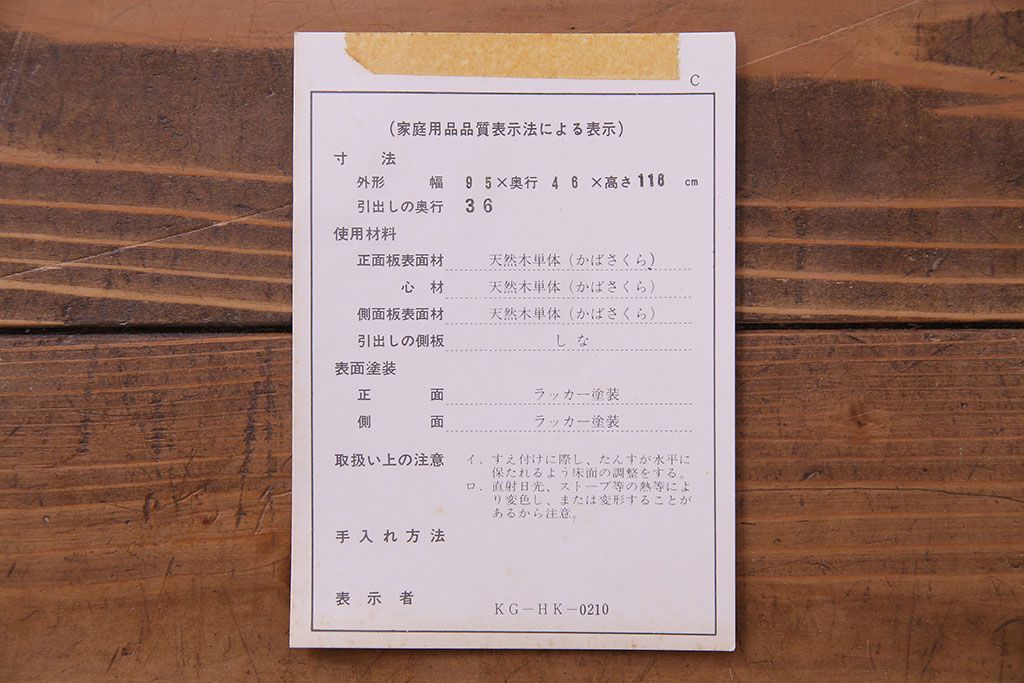 C
(家庭用品品質表示法による表示)
寸 法
外形 幅 95×奥行 46×高さ118 cm
引出しの奥行 36
使用材料
正面板表面材 天然木単体(かばさくら)
心材 天然木単体(かばさくら)
側面板表面材 天然木単体(かばさくら)
引出しの側板 しな
表面塗装
正 面 ラッカー塗装
側 面 ラッカー塗装
取扱い上の注意 イ. すえ付けに際し、たんすが水平に
保たれるよう床面の調整をする。
ロ. 直射日光、ストーブ等の熱等によ
り変色し、または変形することが
あるから注意。
手入れ方法
表示者 KG-HK-0210